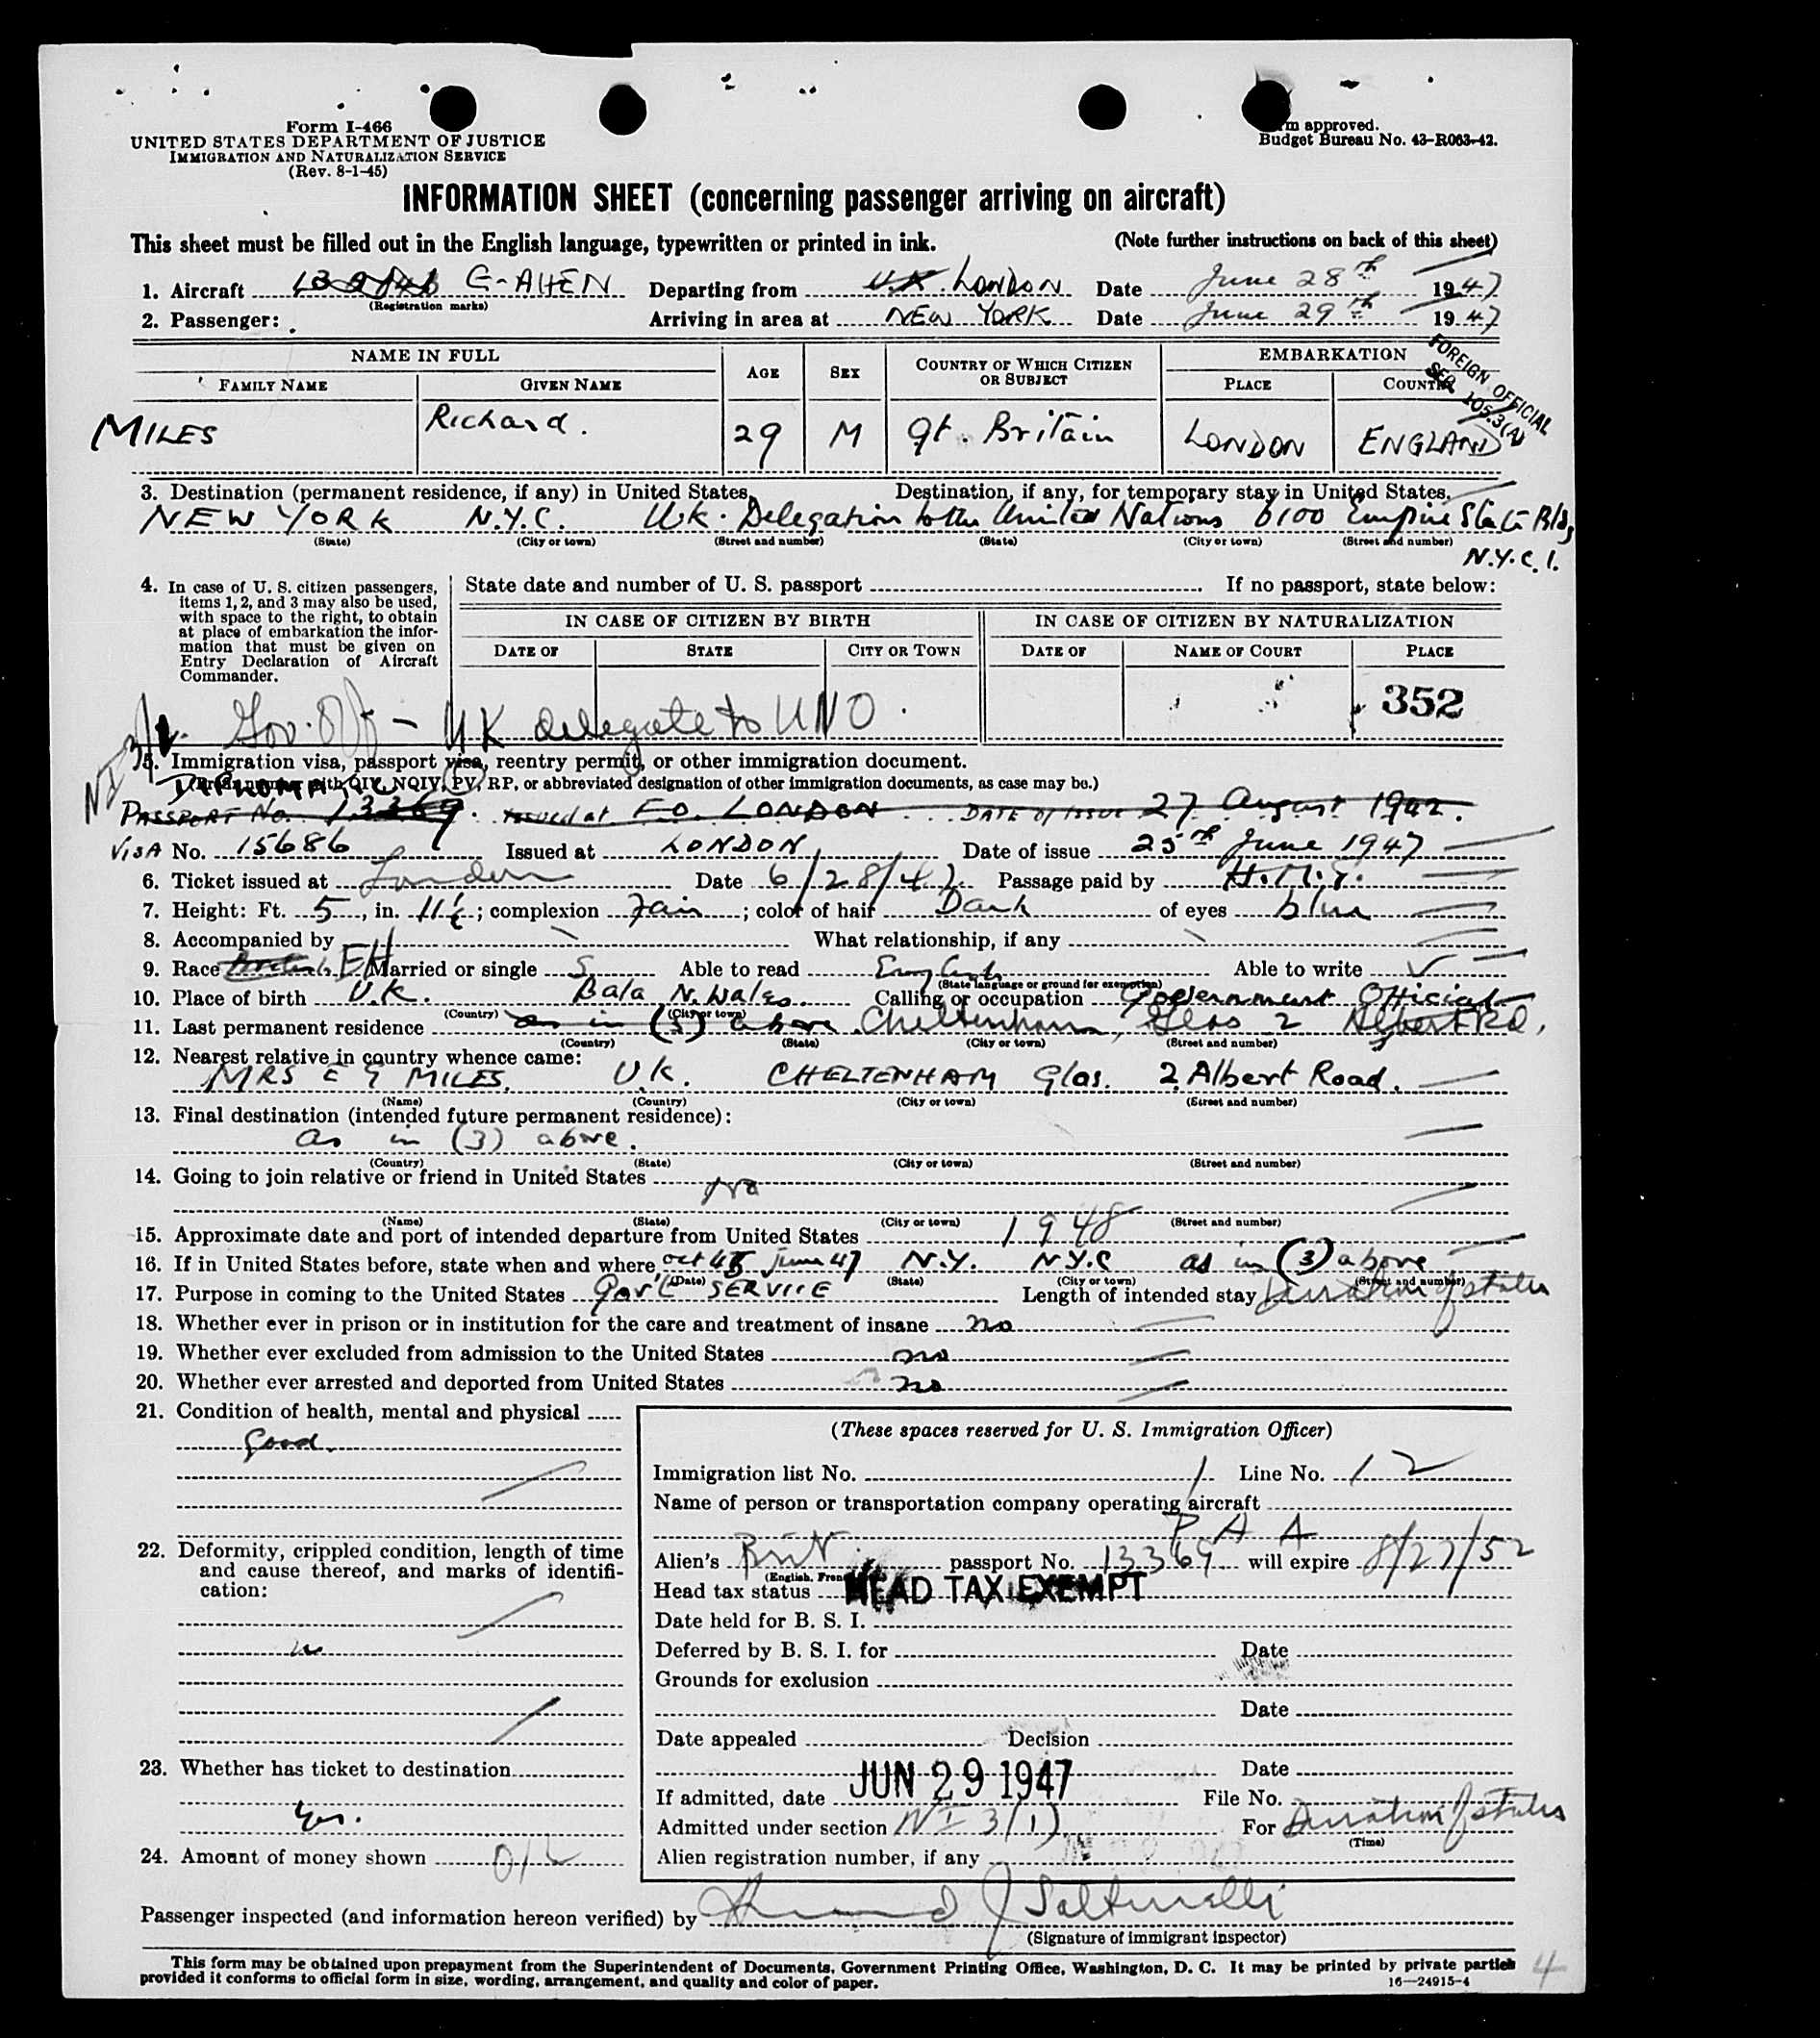 Form I-466
UNITED STATES DEPARTMENT OF JUSTICE
IMMIGRATION AND NATURALIZATION SERVICE
(Rev. 8-1-45)
approved.
Budget Bureau No. 43-R063-42.
INFORMATION SHEET (concerning passenger arriving on aircraft)
This sheet must be filled out in the English language, typewritten or printed in ink. (Note further instructions on back of this sheet)
1. Aircraft G-AHEN Departing from U.K. LONDON Date June 28th 1947
(Registration marks)
2. Passenger: Arriving in area at NEW YORK Date June 29th 1947
FOREIGN OFFICIAL
SEC. 105.3(A)
NAME IN FULL AGE SEX COUNTRY OF WHICH CITIZEN OR SUBJECT EMBARKATION
FAMILY NAME GIVEN NAME PLACE COUNTRY
MILES Richard. 29 M Gt. Britain LONDON ENGLAND
3. Destination (permanent residence, if any) in United States, Destination, if any, for temporary stay in United States.
NEW YORK N.Y.C. U.K. Delegation to the United Nations 6100 Empire State Bldg
(State) (City or town) (Street and number) (State) (City or town) (Street and number)
N.Y.C. 1.
4. In case of U. S. citizen passengers, items 1, 2, and 3 may also be used, with space to the right, to obtain at place of embarkation the information that must be given on Entry Declaration of Aircraft Commander.
State date and number of U. S. passport If no passport, state below:
IN CASE OF CITIZEN BY BIRTH IN CASE OF CITIZEN BY NATURALIZATION
DATE OF STATE CITY OR TOWN DATE OF NAME OF COURT PLACE
352
Gov. Off - UK delegate to UNO.
5. Immigration visa, passport visa, reentry permit, or other immigration document.
with QIV, NQIV, PV, RP, or abbreviated designation of other immigration documents, as case may be.)
DIPLOMATIC
PASSPORT No. 13369. issued at F.O. LONDON DATE of ISSUE 27 August 1942.
VISA No. 15686 Issued at LONDON Date of issue 25th June 1947
6. Ticket issued at London Date 6/28/47 Passage paid by H.M.G.
7. Height: Ft. 5, in. 11½; complexion Fair; color of hair Dark of eyes blue
8. Accompanied by What relationship, if any
9. Race British EH Married or single S Able to read English Able to write ✓
(State language or ground for exemption)
10. Place of birth U.K. Bala N. Wales. Calling or occupation Government Official
(Country) (City or town)
11. Last permanent residence as in (3) above Cheltenham, Glos 2 Albert Rd,
(Country) (State) (City or town) (Street and number)
12. Nearest relative in country whence came:
MRS E G MILES. U.K. CHELTENHAM Glos. 2 Albert Road.
(Name) (Country) (City or town) (Street and number)
13. Final destination (intended future permanent residence):
as in (3) above.
(Country) (State) (City or town) (Street and number)
14. Going to join relative or friend in United States No
(Name) (State) (City or town) (Street and number)
15. Approximate date and port of intended departure from United States 1948
16. If in United States before, state when and where Oct 45 June 47 N.Y. N.Y.C as in (3) above
(Date) (State) (City or town) (Street and number)
17. Purpose in coming to the United States Gov't SERVICE Length of intended stay Duration of status
18. Whether ever in prison or in institution for the care and treatment of insane no
19. Whether ever excluded from admission to the United States no
20. Whether ever arrested and deported from United States no
21. Condition of health, mental and physical
Good.
22. Deformity, crippled condition, length of time and cause thereof, and marks of identification:
23. Whether has ticket to destination
Yes.
24. Amount of money shown
(These spaces reserved for U. S. Immigration Officer)
Immigration list No. 1 Line No. 12
Name of person or transportation company operating aircraft
P A A
Alien's Brit. passport No. 13369 will expire 8/27/52
Head tax status HEAD TAX EXEMPT
Date held for B. S. I.
Deferred by B. S. I. for Date
Grounds for exclusion
Date
Date appealed Decision
Date
If admitted, date JUN 29 1947 File No.
Admitted under section NI 3(1) For Duration of status
(Time)
Alien registration number, if any
Passenger inspected (and information hereon verified) by
(Signature of immigrant inspector)
This form may be obtained upon prepayment from the Superintendent of Documents, Government Printing Office, Washington, D. C. It may be printed by private parties
provided it conforms to official form in size, wording, arrangement, and quality and color of paper. 16—24915-4
4